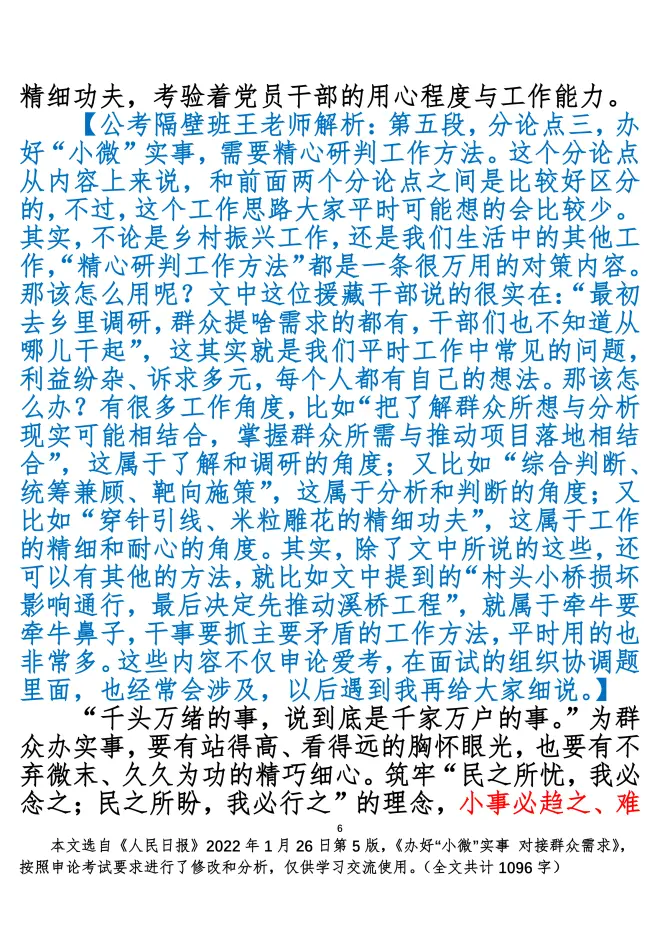 精细功夫，考验着党员干部的用心程度与工作能力。
【公考隔壁班王老师解析：第五段，分论点三，办
好“小微”实事，需要精心研判工作方法。这个分论点
从内容上来说，和前面两个分论点之间是比较好区分
的，不过，这个工作思路大家平时可能想的会比较少。
其实，不论是乡村振兴工作，还是我们生活中的其他工
作，“精心研判工作方法”都是一条很万用的对策内容。
那该怎么用呢？文中这位援藏干部说的很实在：“最初
去乡里调研，群众提啥需求的都有，干部们也不知道从
哪儿干起”，这其实就是我们平时工作中常见的问题，
利益纷杂、诉求多元，每个人都有自己的想法。那该怎
么办？有很多工作角度，比如“把了解群众所想与分析
现实可能相结合，掌握群众所需与推动项目落地相结
合”，这属于了解和调研的角度；又比如“综合判断、
统筹兼顾、靶向施策”，这属于分析和判断的角度；又
比如“穿针引线、米粒雕花的精细功夫”，这属于工作
的精细和耐心的角度。其实，除了文中所说的这些，还
可以有其他的方法，就比如文中提到的“村头小桥损坏
影响通行，最后决定先推动溪桥工程”，就属于牵牛要
牵牛鼻子，干事要抓主要矛盾的工作方法，平时用的也
非常多。这些内容不仅申论爱考，在面试的组织协调题
里面，也经常会涉及，以后遇到我再给大家细说。】
“千头万绪的事，说到底是千家万户的事。”为群
众办实事，要有站得高、看得远的胸怀眼光，也要有不
弃微末、久久为功的精巧细心。筑牢“民之所忧，我必
念之；民之所盼，我必行之”的理念，小事必趋之、难
6
本文选自《人民日报》2022 年 1 月 26 日第 5 版，《办好“小微”实事 对接群众需求》，
按照申论考试要求进行了修改和分析，仅供学习交流使用。（全文共计 1096 字）